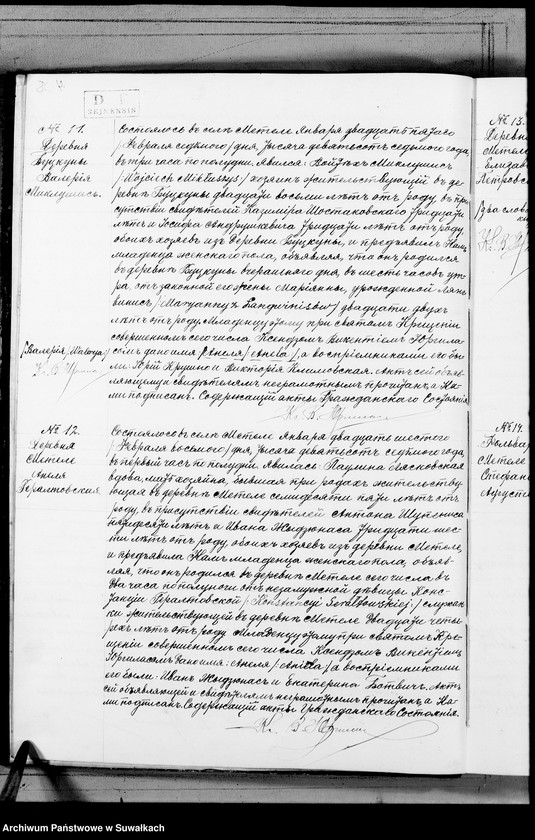 SEJNENSIS
№ 11.
Деревня
Буцкуны
Валерія
Миклушисъ.
Состоялось въ селѣ Метеле Января двадцать пятаго
/Февраля седьмого/ дня, тысяча девятьсотъ седьмого года,
въ три часа по полудни. Явился: Войцѣхъ Миклушисъ
/Wojciech Mikłuszys/ хозяинъ жительствующій въ де-
ревнѣ Буцкуны двадцати восьми лѣтъ отъ роду, въ при-
сутствіи свидѣтелей Казимира Шостаковскаго тридцати
лѣтъ и Іосифа тридцати лѣтъ отъ роду,
обоихъ хозяевъ изъ деревни Буцкуны, и предъявилъ Намъ
младенца женскаго пола, объявляя, что онъ родился
въ деревнѣ Буцкуны вчерашняго дня, въ шесть часовъ ут-
ра, отъ законной его жены Маріанны, урожденной
/Maryanny z / двадцати двухъ
лѣтъ отъ роду. Младенцу этому при святомъ Крещеніи
совершенномъ сего числа Ксендзомъ Викентіемъ
дано имя /Анеля/ /Aniela/, а воспріемниками его бы-
/Валерія/Waleorya/
ли: Юрій и Викторія Климовская. Актъ сей объяв-
ляющему и свидѣтелямъ неграмотнымъ прочитанъ, а На-
ми подписанъ. Содержащій акты Гражданскаго Состоянія
К. В.
№ 12.
Деревня
Метеле
Анеля
Геральтовская
Состоялось въ селѣ Метеле Января двадцать шестого
/Февраля восьмого/ дня, тысяча девятьсотъ седьмого года,
въ первый часъ по полудни. Явилась: Паулина Лясковская
вдова, хозяйка, бывшая при родахъ жительству-
ющая въ деревнѣ Метеле семидесяти пяти лѣтъ отъ
роду, въ присутствіи свидѣтелей Антона
пятидесяти лѣтъ и Ивана Жидзюнаса тридцати шес-
ти лѣтъ отъ роду, обоихъ хозяевъ изъ деревни Метеле,
и предъявила Намъ младенца женскаго пола, объяв-
ляя, что онъ родился въ деревнѣ Метеле сего числа въ
два часа по полуночи отъ незамужней дѣвицы Конс-
танціи Геральтовской /Konstancyi Geraltowskiej/ служан-
ки жительствующей въ деревнѣ Метеле двадцати четы-
рехъ лѣтъ отъ роду. Младенцу этому при святомъ Кре-
щеніи совершенномъ сего числа Ксендзомъ Викентіемъ
дано имя: Анеля /Aniela/ а воспріемниками
его были: Иванъ Жидзюнасъ и Екатерина Ботвичъ. Актъ
сей объявляющей и свидѣтелямъ неграмотнымъ прочитанъ, а На-
ми подписанъ. Содержащій акты Гражданскаго Состоянія.
К. В.
№ 13.
Деревня
Метеле
Елизав
Петровск
№ 14.
Метеле
Стефан
Августи
Archiwum Państwowe w Suwałkach